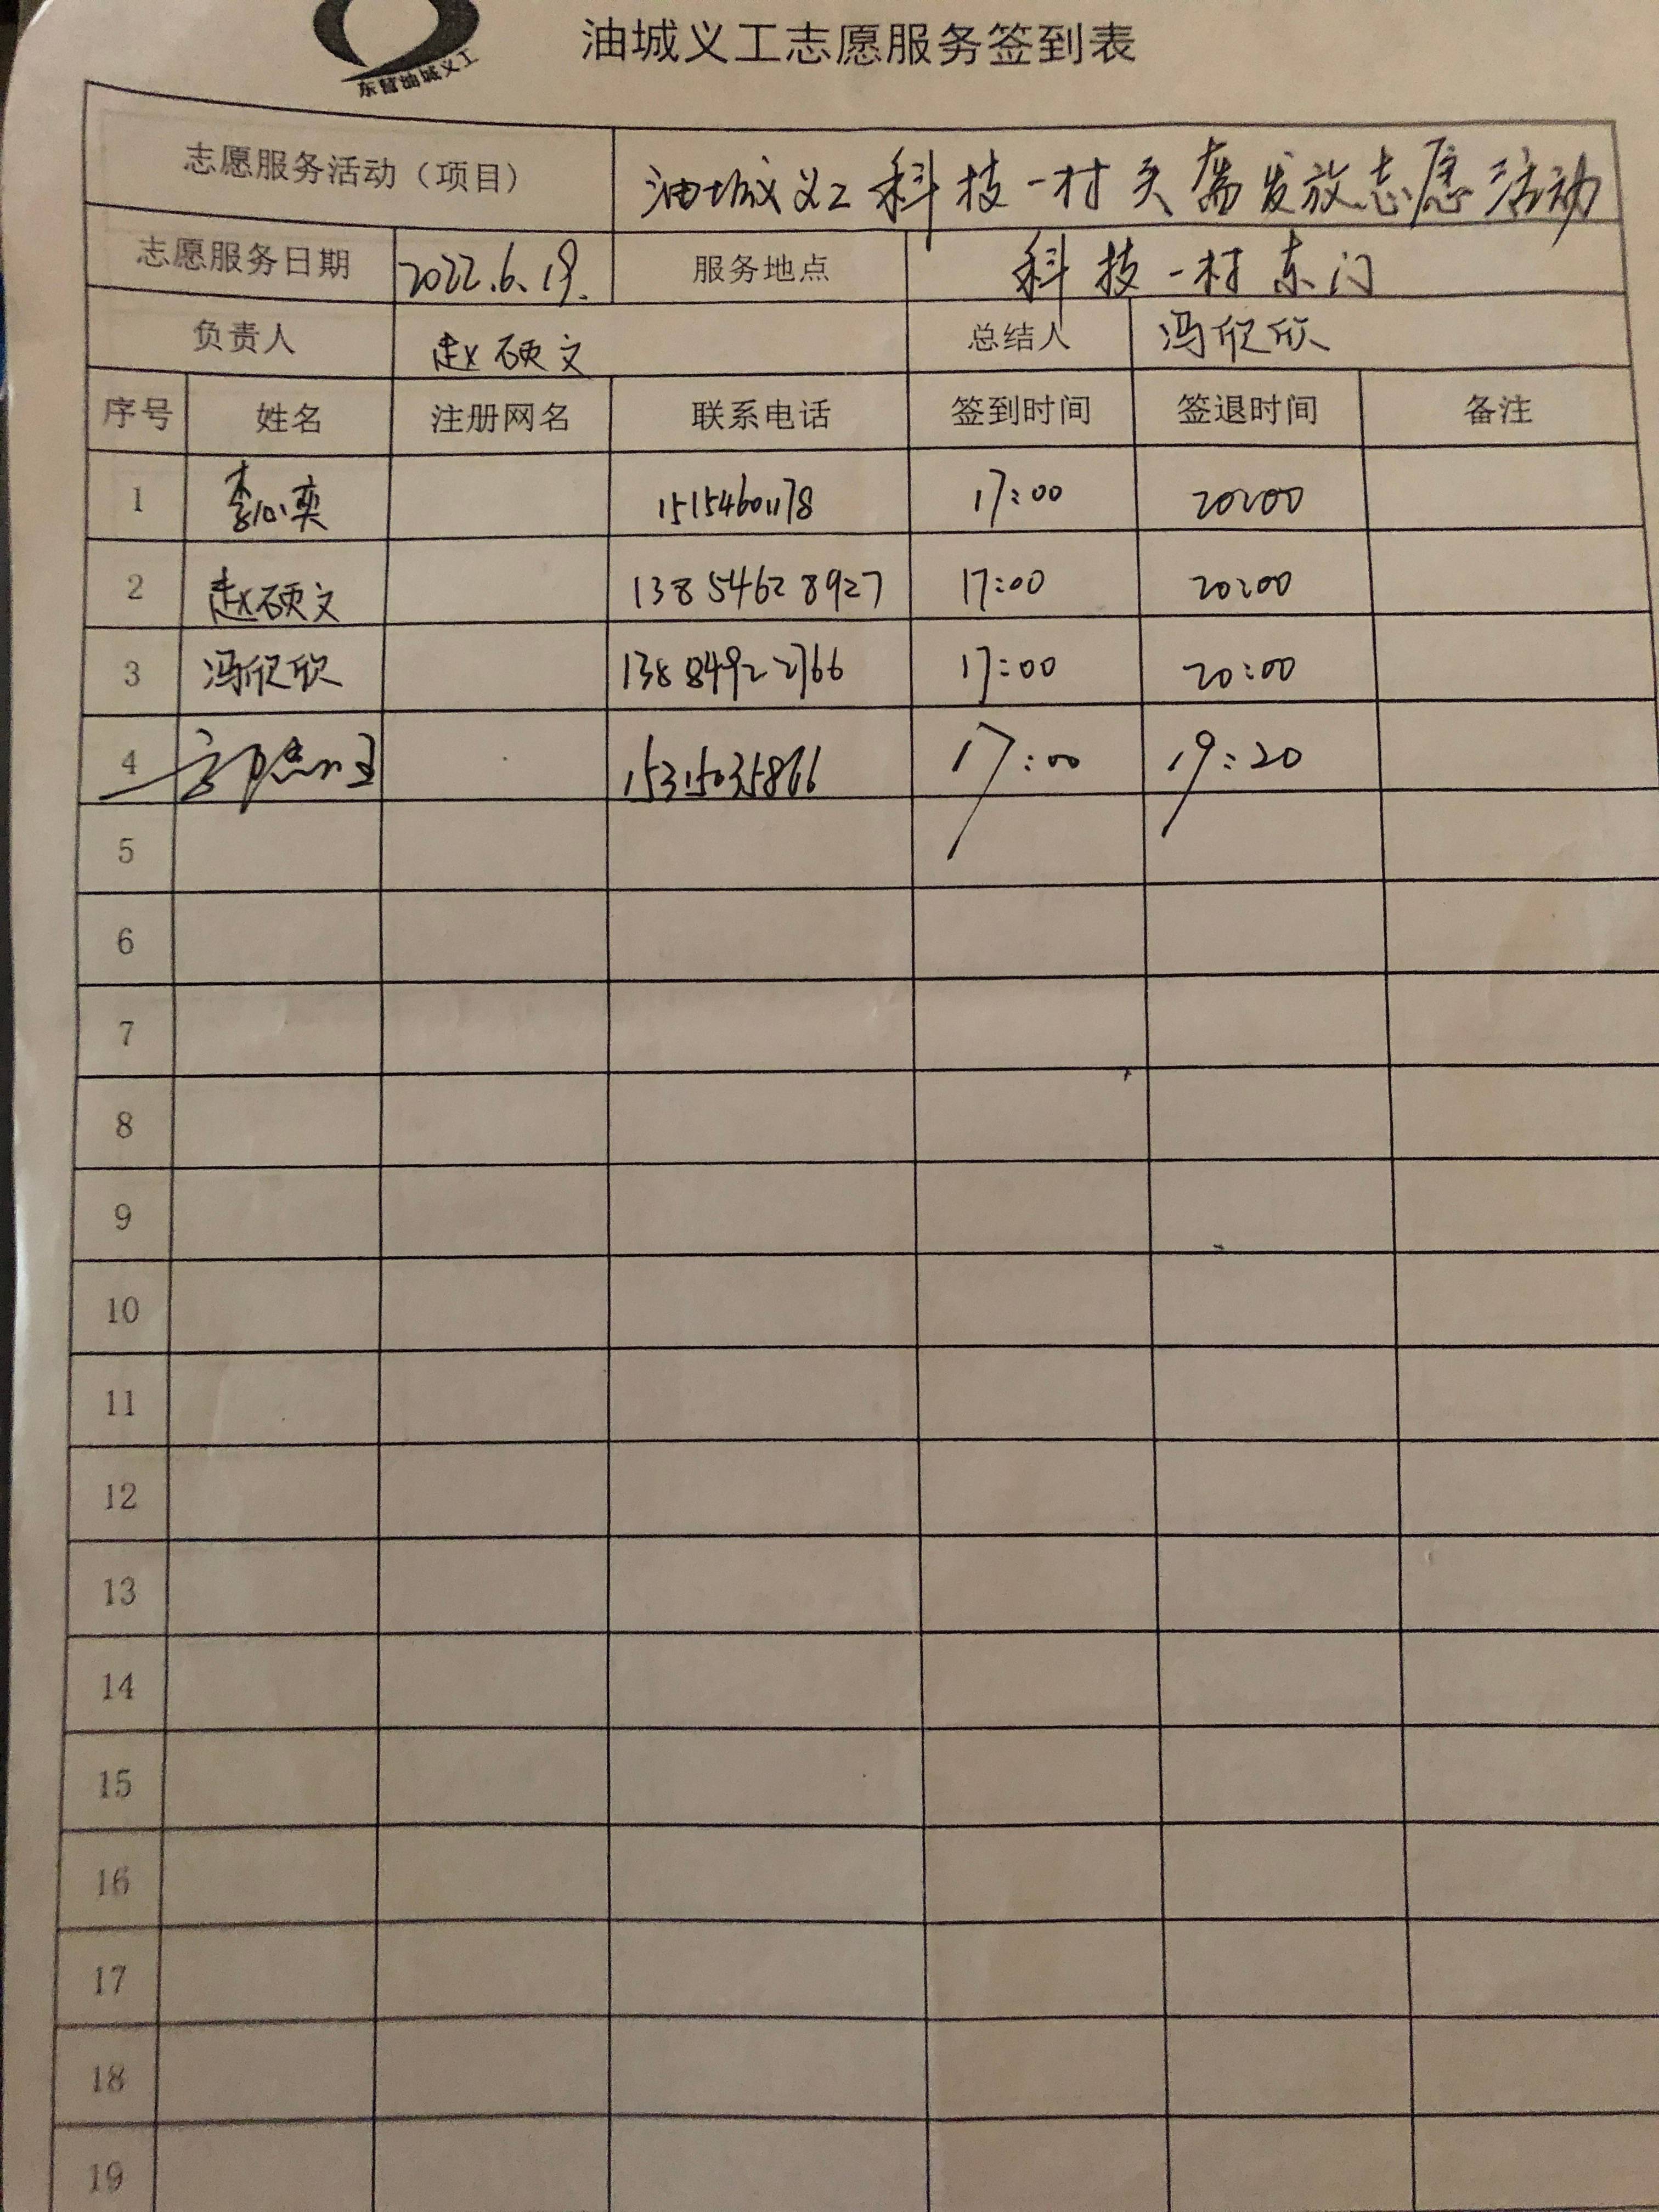 东营油城义工
油城义工志愿服务签到表
志愿服务活动（项目） 油城义工科技一村关爱发放志愿活动
志愿服务日期 2022.6.19. 服务地点 科技一村东门
负责人 赵硕文 总结人 冯欣欣
序号 姓名 注册网名 联系电话 签到时间 签退时间 备注
1 李沁奕 15154601178 17:00 20:00
2 赵硕文 13854628927 17:00 20:00
3 冯欣欣 13884922766 17:00 20:00
4 17:00 19:20
5
6
7
8
9
10
11
12
13
14
15
16
17
18
19